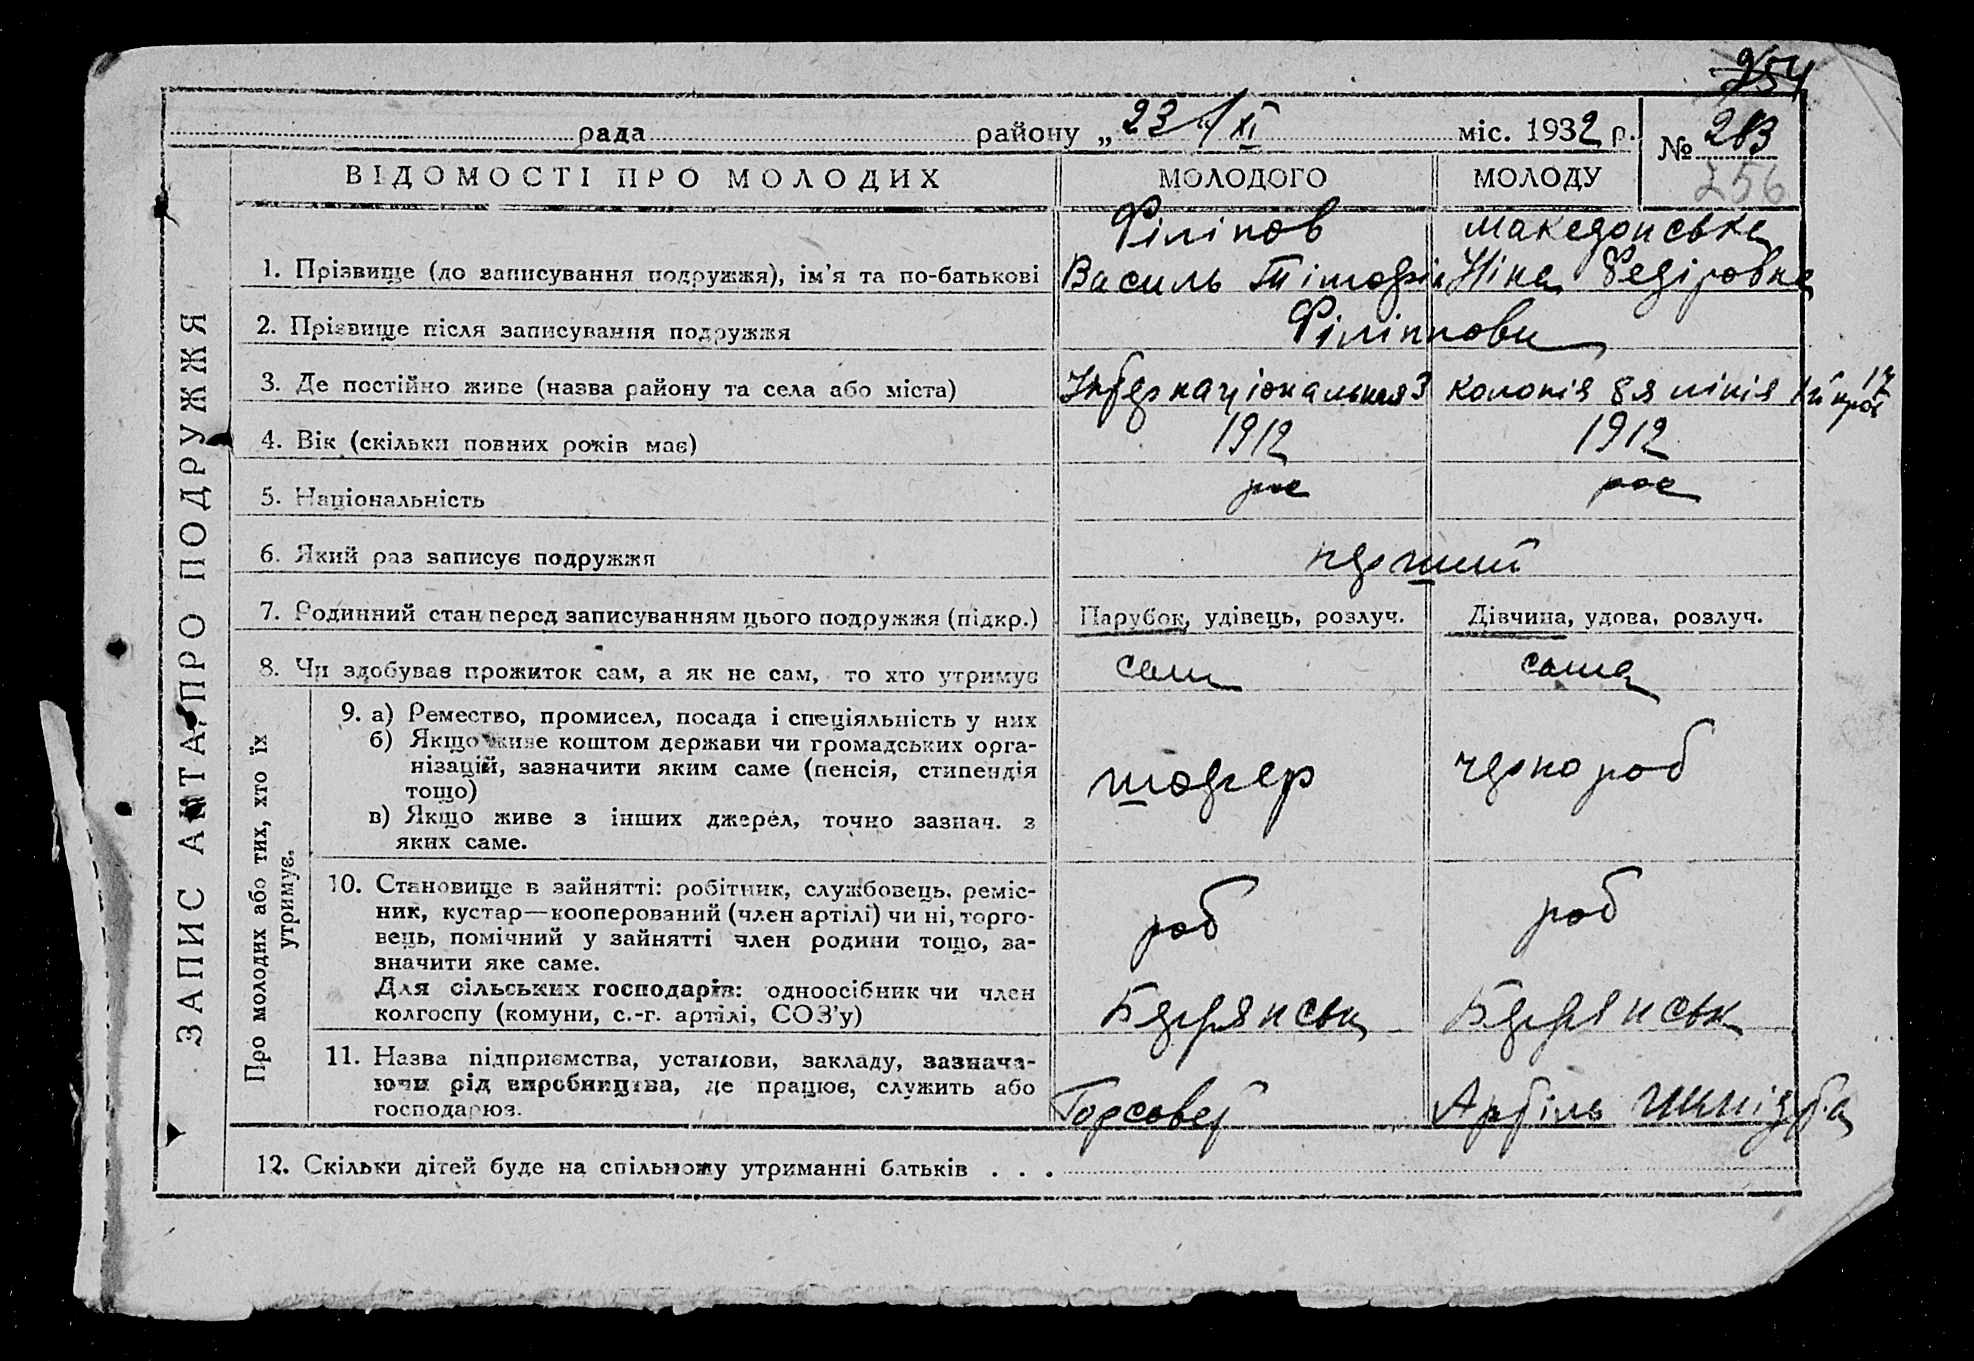 254
рада району „ 23 " XI міс. 1932 р. № 213
256
ВІДОМОСТІ ПРО МОЛОДИХ МОЛОДОГО МОЛОДУ
ЗАПИС АКТА ПРО ПОДРУЖЖЯ
Філіпов Македонська
1. Прізвище (до записування подружжя), ім'я та по-батькові Василь Тімофій Ніна Федіровна
2. Прізвище після записування подружжя Філіппови
3. Де постійно живе (назва району та села або міста) Інтернаціональная 3 колонія 8я лінія 1й прое 17
4. Вік (скільки повних років має) 1912 1912
5. Національність рос рос
6. Який раз записує подружжя перший
7. Родинний стан перед записуванням цього подружжя (підкр.) Парубок, удівець, розлуч. Дівчина, удова, розлуч.
8. Чи здобував прожиток сам, а як не сам, то хто утримує сам сама
Про молодих або тих, хто їх утримує.
9. а) Ремество, промисел, посада і спеціяльність у них
б) Якщо живе коштом держави чи громадських орга-
нізацій, зазначити яким саме (пенсія, стипендія
тощо)
в) Якщо живе з інших джерел, точно зазнач. з
яких саме.
шофер чернороб
10. Становище в зайнятті: робітник, службовець, реміс-
ник, кустар—кооперований (член артілі) чи ні, торго-
вець, помічний у зайнятті член родини тощо, за-
значити яке саме.
Для сільських господарів: одноосібник чи член
колгоспу (комуни, с.-г. артілі, СОЗ'у)
роб роб
Бердянськ Бердянськ
11. Назва підприємства, установи, закладу, зазнача-
ючи рід виробництва, де працює, служить або
господарює.
Горсовет Артіль
12. Скільки дітей буде на спільному утриманні батьків . . .